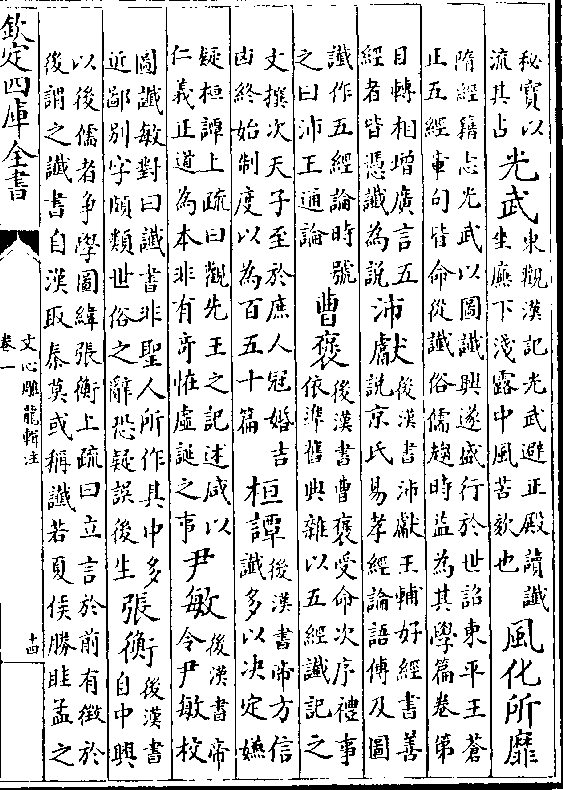 秘寶以
流其占
光武
東觀漢記光武避正殿讀讖
坐廡下淺露中風苦欬也
風化所靡
隋經籍志光武以圖讖興遂盛行於世詔東平王蒼
正五經章句皆命從讖俗儒趨時益為其學篇卷第
目轉相增廣言五
經者皆憑讖為説
沛獻
後漢書沛獻王輔好經書善
説京氏易孝經論語傳及圖
讖作五經論時號
之曰沛王通論
曹褒
後漢書曹褒受命次序禮事
依準舊典雜以五經讖記之
文撰次天子至於庶人冠婚吉
凶終始制度以為百五十篇
桓譚
後漢書帝方信
讖多以決定嫌
疑桓譚上疏曰觀先王之記述咸以
仁義正道為本非有奇怪虛誕之事
尹敏
後漢書帝
令尹敏校
圖讖敏對曰讖書非聖人所作其中多
近鄙別字頗類世俗之辭恐疑誤後生
張衡
後漢書
自中興
以後儒者爭學圖緯張衡上疏曰立言於前有徵於
後謂之讖書自漢取秦莫或稱讖若夏侯勝眭孟之
欽定四庫全書
文心雕龍輯注
卷一
十四